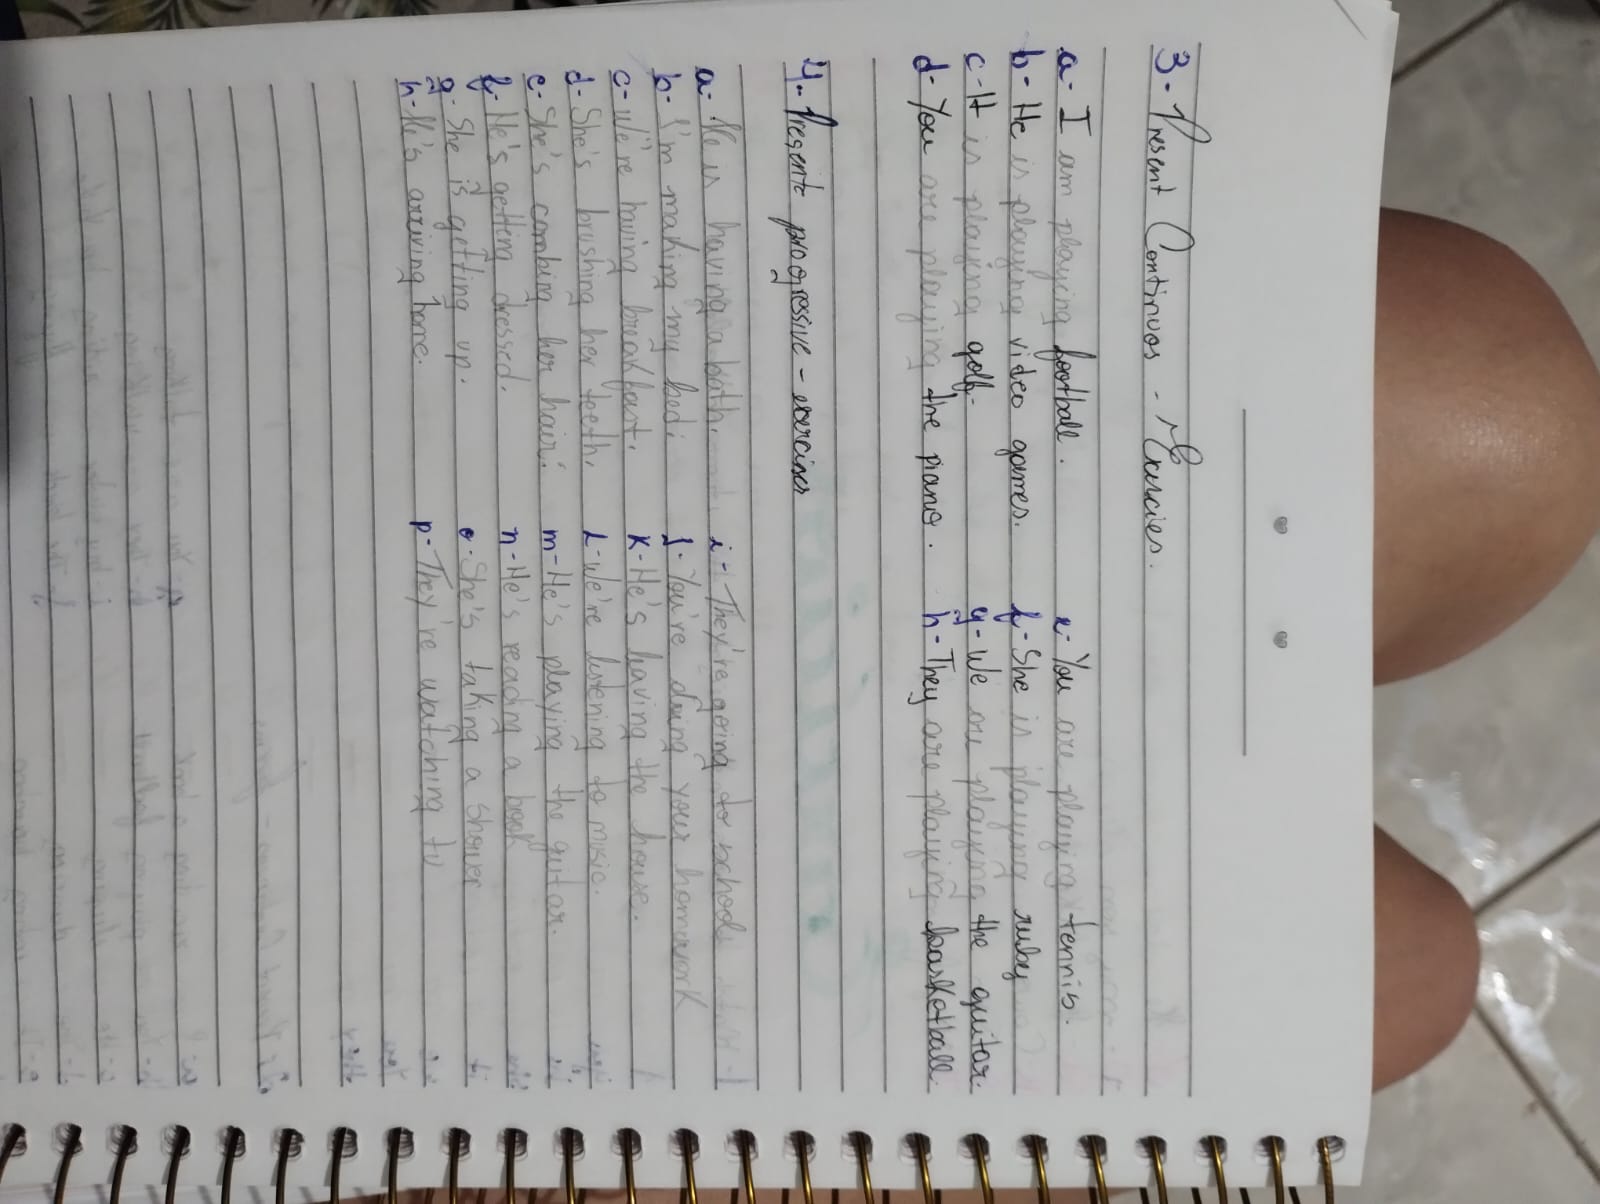 3- Present Continuos - Exercies.
a- I am playing football.
b- He is playing video games.
c- It is playing golf.
d- You are playing the piano.
e- You are playing tennis.
f- She is playing ruby
g- We are playing the guitar.
h- They are playing basketball.
4- Presente progressive - exercises
a- He is having a bath.
b- I'm making my bed.
c- We're having breakfast.
d- She's brushing her teeth.
e- She's combing her hair.
f- He's getting dressed.
g- She is getting up.
h- He's arriving home.
i- They're going to school
J- You're doing your homework
K- He's leaving the house.
L- We're listening to music.
m- He's playing the gutar.
n- He's reading a book
o- She's taking a shower
p- They're watching tv